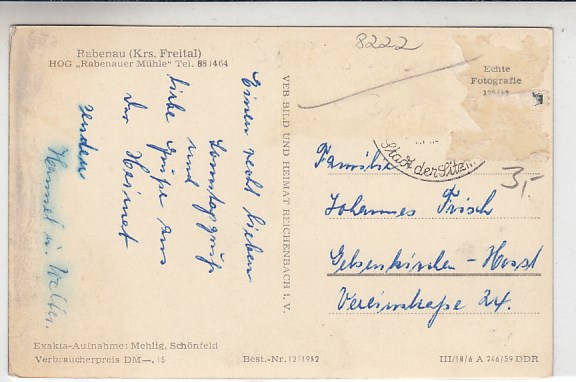 Rabenau (Krs. Freital)
HOG „Rabenauer Mühle" Tel. 881464
Einen recht lieben
Sonntagsgruß
und
liebe Grüße aus
der Heimat
senden
Hannel u. Walter.
VEB BILD UND HEIMAT REICHENBACH i. V.
8222
Echte
Fotografie
Stadt der Sitz
3,-
Familie
Johannes Frisch
Gelsenkirchen - Horst
Vereinstraße 24.
Exakta-Aufnahme: Mehlig, Schönfeld
Verbraucherpreis DM —,15
Best.-Nr. 12/1952
III/18/6 A 246/59 DDR